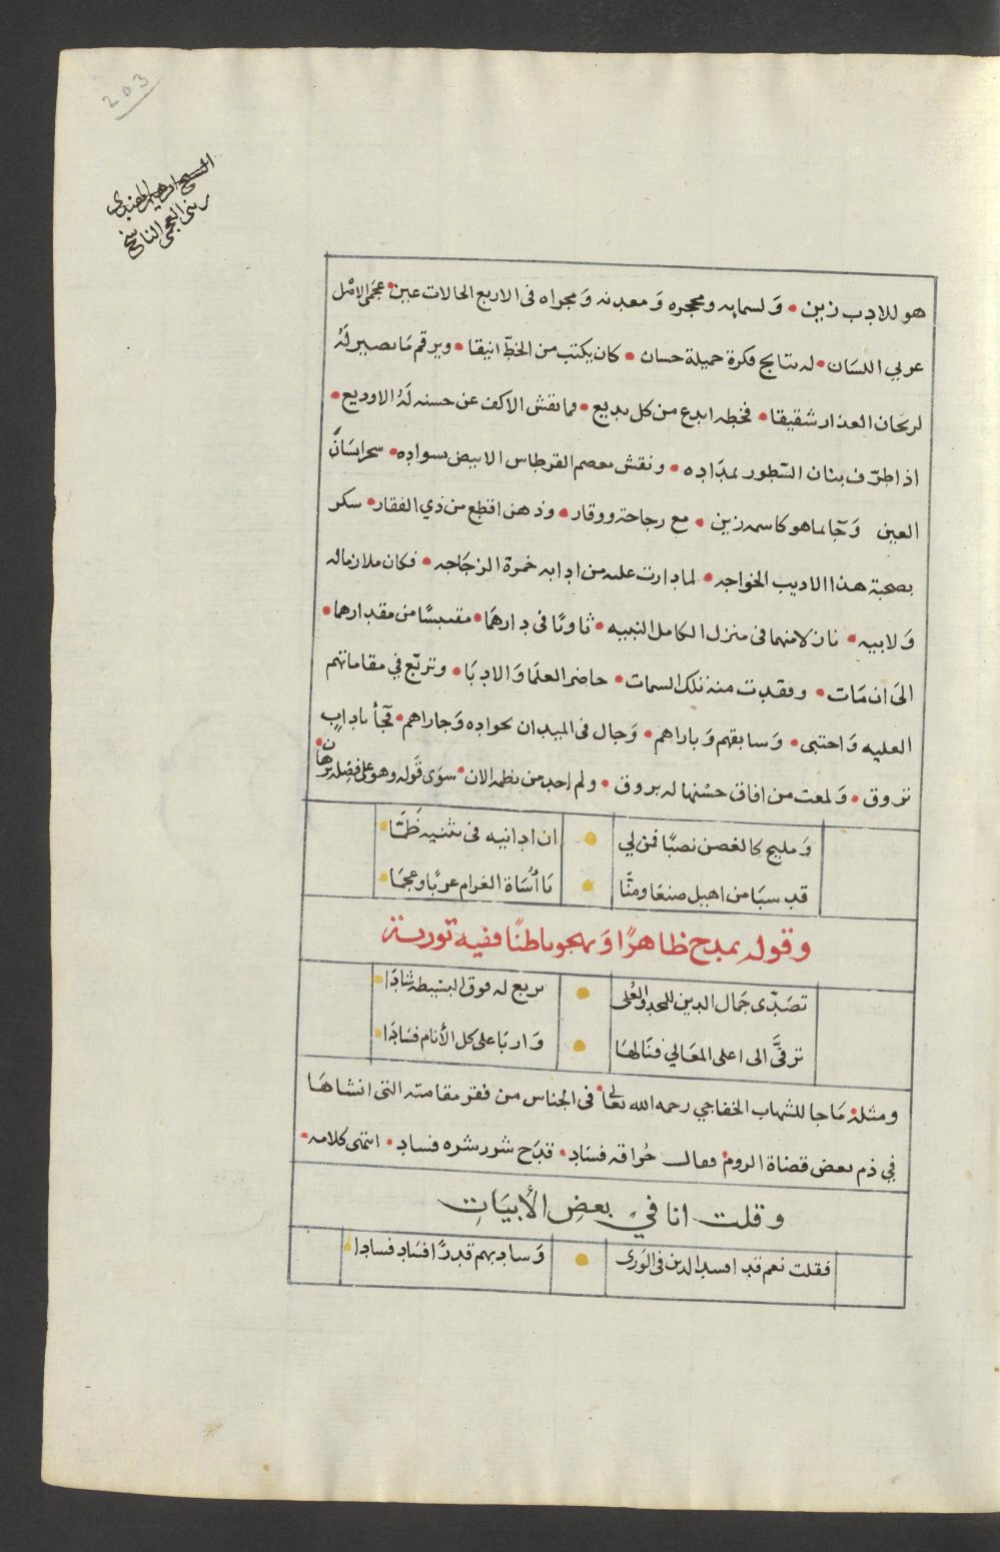 203
الشيخ ابراهيم الهندي
العجمي الناسخ
هو للادب زين • وَلسمايه ومحجره وَمعدنه وَمجراه فى الاربع الحالات عين • عجمي الاصل
عربي اللسَان • له نتايج فكرة جميلة حسان • كان يكتب من الخطّ انيقا • ويرقم مَا يصير لهُ
لريحان العذار شقيقا • فخطه ابدع من كل بديع • فما نقش الاكف عن حسنه لهُ الا وديع •
اذا طرّف بنان السّطور بمدَاده • ونقش معصم القرطاس الابيض بسواده • سحر انسَان
العين وَحَآلما هو كاسمه زين • مع رجاحة ووقار • وذهن اقطع من ذي الفقار • سكر
بصحبة هذا الاديب الخواجه • لما دارت عليه من ادابه خمرة الزجَاجه • فكان ملازما له
وَلابيه • نازلا منهما فى منزل الكامل النبيه • ثاويًا فى دارهمَا • مقتبسًا من مقدارهما •
الىَ ان مَات • وفقدت منه تلك السمات • حاضر العلمَا وَالادبَا • وتربّع في مقاماتهم
العليه وَاحتبى • وَسابقهم وَباراهم • وَجال فى الميدان بجواده وَجاراهم • فجأ باداب
تروق • وَلمعت من افاق حسْنها له بروق • ولم اجد من نظمه الان • سوَى قَوله وهو على فضله برهَان •
وَمليح كالغصن نصبًا فمن لي • ان ادانيه فى تثنيه ضَمَّا •
قد سبَا من اهيل صنعَا ومنَّا • مَا أُسَاة الغرام عربًا وعجمَا •
وقوله يمدح ظاهرًا وَيهجو باطنًا ففيه تورية
تصَدّى جمَال الدين للمجد والعُلى • بربع له فوق البسيطة شَادَا •
ترقىَّ الى اعلى المعَالي فنَالهَا • وَاربَا على كل الأنام فسَادَا •
ومثله مَا جا للشهاب الخفاجي رحمه الله تعَالى • فى الجناس من فقر مقامته التى انشاهَا
في ذم بعض قضاة الروم • فقال حُراقه فسَاد • قدَح شور شوره فساد • انتهى كلامه •
وقلت انا في بعض الأبيَات
فقلت نعم قد افسد الدين فى الوَرى • وَساد بهم قدرًا افسَاد فسادا •